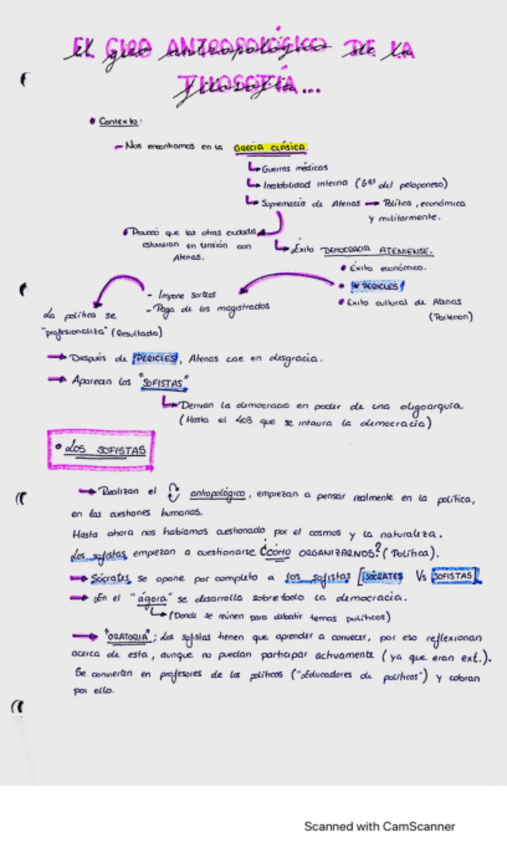 EL GIRO ANTROPOLÓGICO DE LA
FILOSOFÍA...
• Contexto:
– Nos encontramos en la GRECIA CLÁSICA.
Guerras médicas
Inestabilidad interna (Gas del peloponeso)
Supremacía de Atenas → Política, económica
y militarmente.
• Provocó que las otras ciudades
estuvieran en tensión con
Atenas.
Éxito DEMOCRACIA ATENIENSE.
• Éxito económico.
• PERICLES
• Éxito cultural de Atenas
(Partenon)
– Impone sorteos
– Paga de los magistrados
La política se
"profesionaliza" (Resultado)
→ Después de PERICLES, Atenas cae en desgracia.
→ Aparecen los "SOFISTAS"
Derivan la democracia en poder de una oligarquía
(Hasta el 403 que se intaura la democracia)
• LOS SOFISTAS
→ Realizan el antropológico, empiezan a pensar realmente en la política,
en las cuestiones humanas.
Hasta ahora nos habíamos cuestionado por el cosmos y la naturaleza.
Los sofistas empiezan a cuestionarse ¿CÓMO ORGANIZARNOS? (Política).
→ Sócrates se opone por completo a los sofistas [SÓCRATES Vs SOFISTAS]
→ En el "ágora" se desarrolla sobretodo la democracia.
(Donde se reúnen para debatir temas políticos)
→ "ORATORIA"; Los sofistas tienen que aprender a convencer, por eso reflexionan
acerca de esta, aunque no puedan participar activamente (ya que eran ext.).
Se convierten en profesores de los políticos ("Educadores de políticos") y cobran
por ello.
Scanned with CamScanner